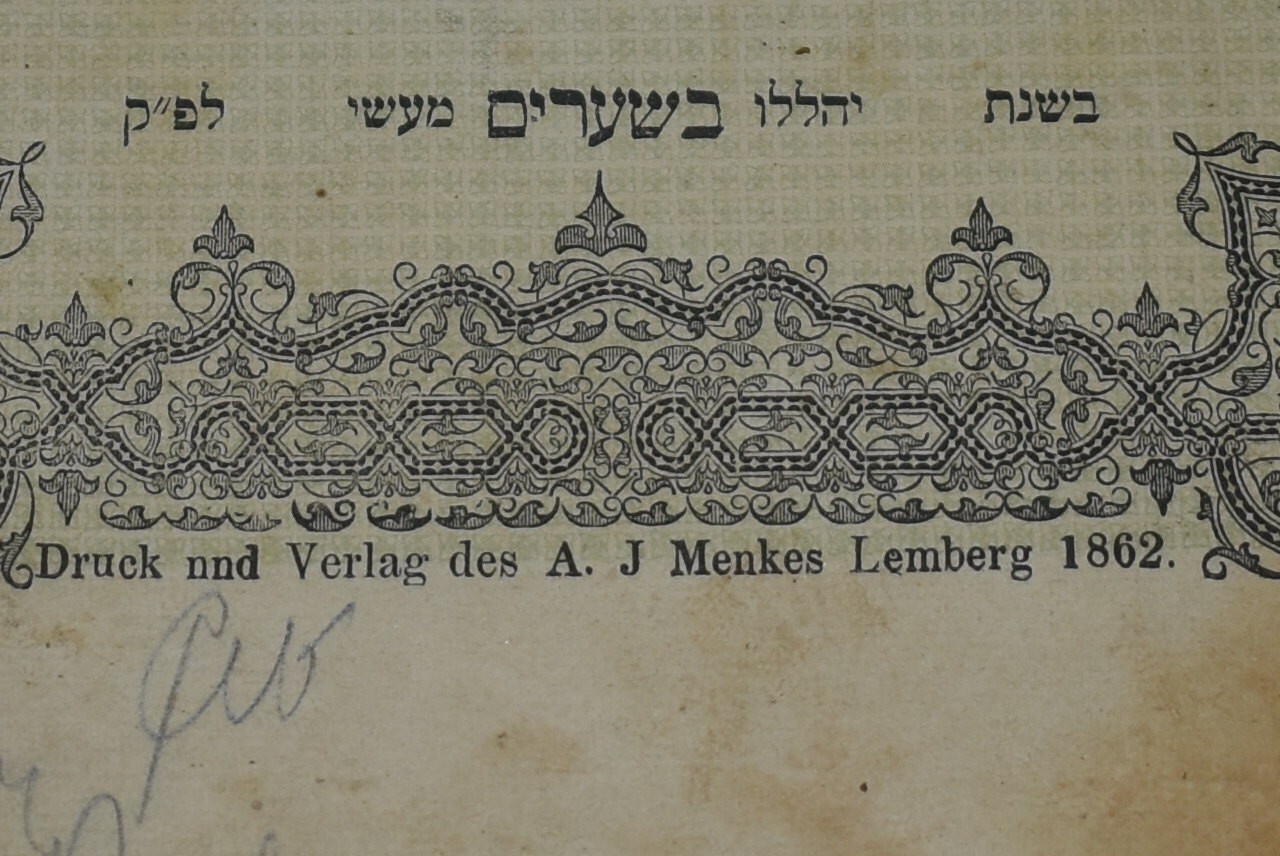 בשנת יהללו בשערים מעשי לפ״ק
Druck nnd Verlag des A. J Menkes Lemberg 1862.